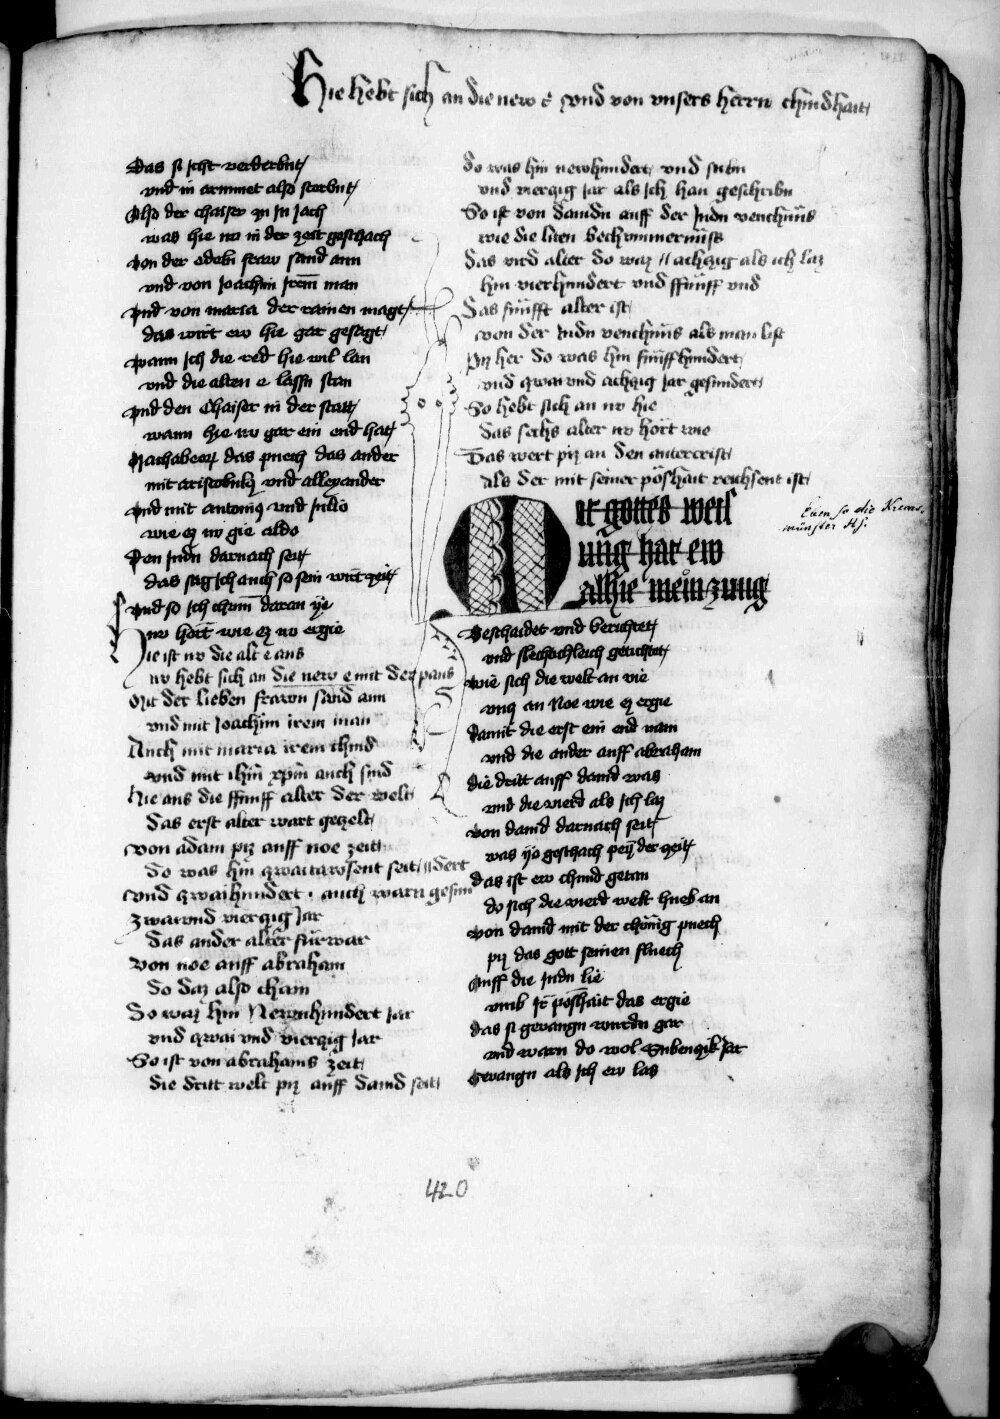 Hie hebt sich an die new e vnd von vnsers herrn chindhait
Das si icht verderbnt
vnd in armuet also sterbnt
Also der chaiser zu in jach
was hie nv in der zeit geschach
Von der edeln fraw sand ann
vnd von Joachim irem man
Vnd von maria der rainen magt
das wirt ew hie gar gesagt
Wann ich die red hie wil lan
vnd die alten e lassn stan
Vnd den Chaiser in der statt
wann hie nv gar ein end hat
Machabeorum das puech das ander
mit aristobulus vnd allexander
Vnd mit antonius vnd Julio
wie ez nv gie aldo
Den Judn darnach seit
das sag ich auch so sein wirt zeit
Vnd so ich chumm daran ye
nv hort wie ez nv ergie
Hie ist nv die alt e aus
nv hebt sich an die new e mit der paus
Mit der lieben frawn sand ann
vnd mit Joachim irem man
Auch mit maria irem chind
vnd mit ihm xpm auch sind
Hie aus die ffunff alter der welt
Das erst alter wart gezelt
Von adam piz auff noe zeit
Do was hin zwaitawsent seit
vnd zwaihundert auch warn gesundert
Zwaivnd vierzig Jar
Das ander alter fürwar
Von noe auff abraham
So daz also cham
Do waz hin Newnhundert Jar
vnd zwai vnd vierzig Jar
So ist von abrahams zeit
die dritt welt piz auff dauid seit
Do was hin newnhundert vnd sibn
vnd vierzig jar als ich han geschribn
So ist von dauidn auff der Judn venchnüs
wie die liten bechummernüss
Das vird alter do waz achzig als ich laz
hin vierhundert vnd ffünff vnd
Das fünfft alter ist
von der Judn venchnüs als man list
Piz her do was hin fünffhundert
vnd zwai vnd achzig jar gesundert
So hebt sich an nv hie
das sechs alter nv hört wie
Das wert piz an den antercrist
als der mit seiner pöshait reichsent ist
Mit gottes weis
ung hat ew
alhie mein zung
Euen so die Krems-
münster Hs.
Beschaidet vnd berichtet
vnd slechtichleich getichtet
Wie sich die welt an vie
vnz an Noe wie ez ergie
Damit die erst ein end nam
vnd die ander auff abraham
die dritt auff dauid was
vnd die vierd als ich laz
Von dauid darnach seit
was ye geschach pey der zeit
das ist ew chund getan
do sich die vierd welt hueb an
Von dauid mit der chönig puech
piz das gott seinen fluech
Auff die Judn lie
vmb ir poshait das ergie
das si gevangn wurdn gar
vnd warn do wol Subenzik Jar
Gevangn als ich ew las
420